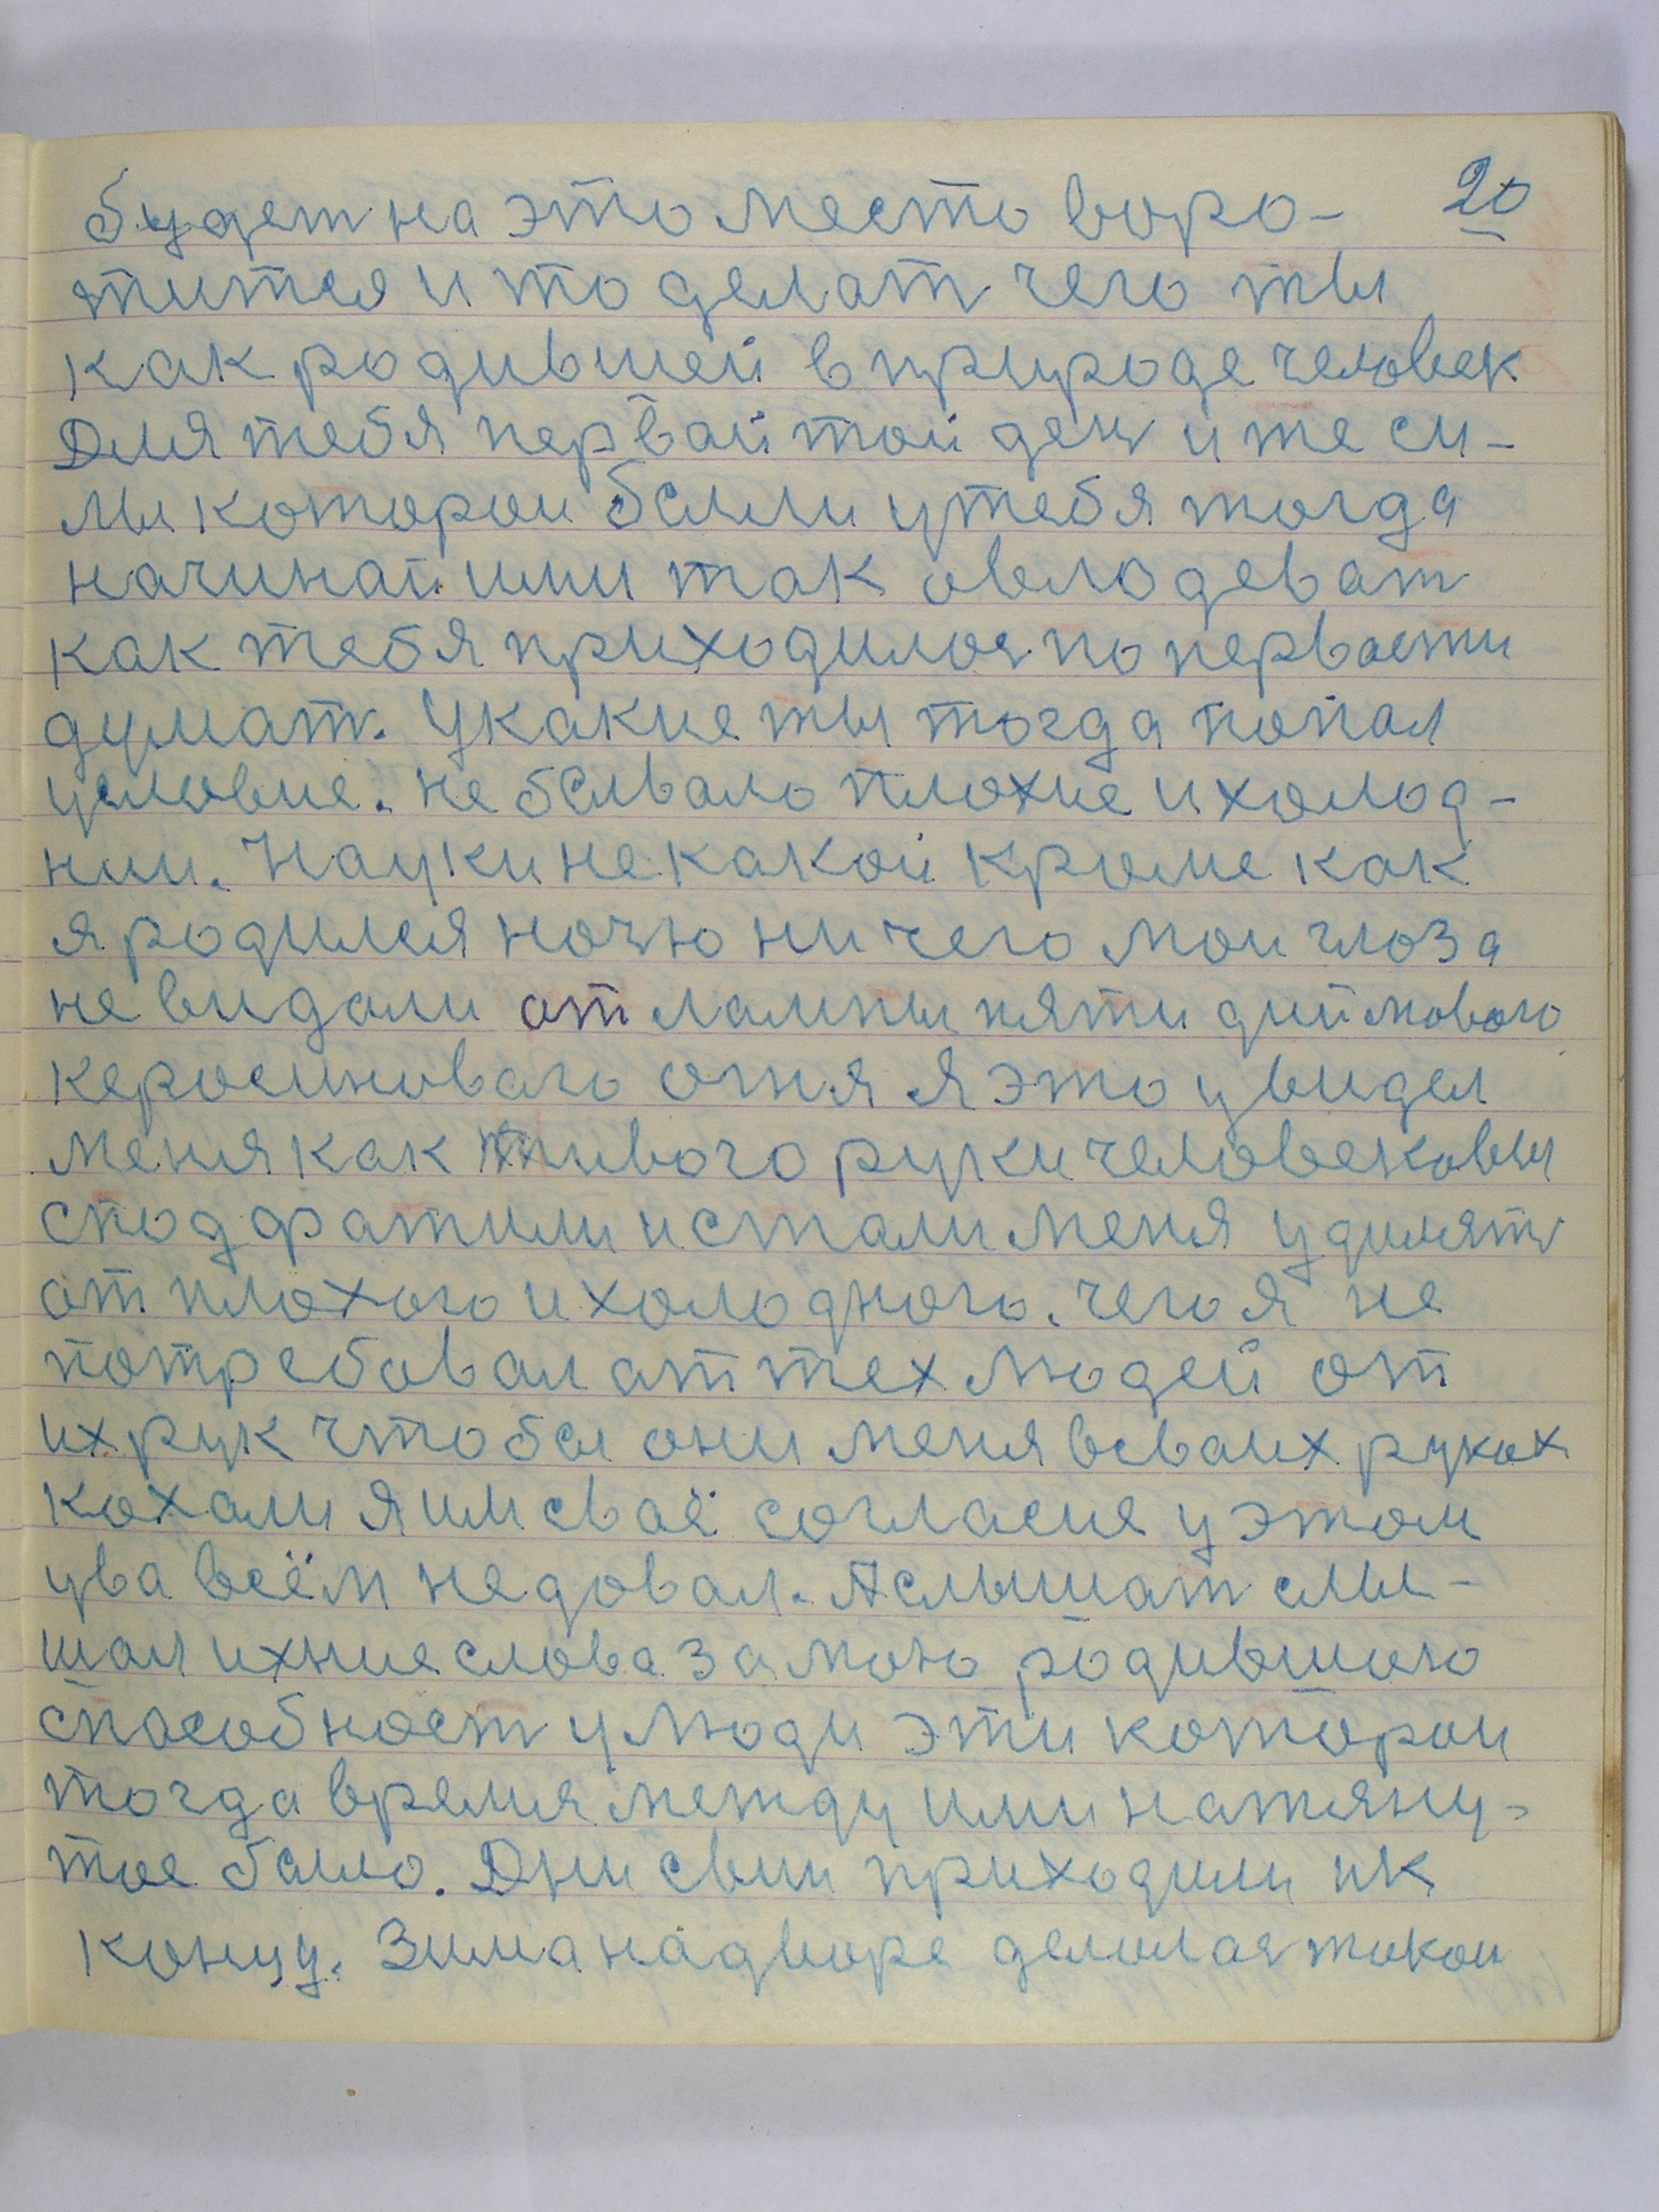 20
будет на это место воро-
тится и то делат чего ты
как родившей в природе человек
Для тебя первай той ден и те си-
мы которои были у тебя тогда
начинай ими так овлодеват
как тебя приходилос по первости
думат. У какие ты тогда попал
условие. не бывало плохие и холод-
нии. Науки некакой кроме как
я родился ночю ни чего мои глоза
не видали от лампы пяти диймового
керосинового огня я это увидел
меня как живого руки человековы
сподфатили и стали меня удилят
от плохого и холодного. чего я не
потребовал от тех людей от
их рук что бы они меня всваих руках
кохали я им сваё согласие у этом
ува всём не довал. А слышат слы-
шал ихние слова за мою родившою
способност у люди эти которои
тогда время между ими натяну-
тое было. Дни свои приходили ик
концу. Зима надворе делилас такои